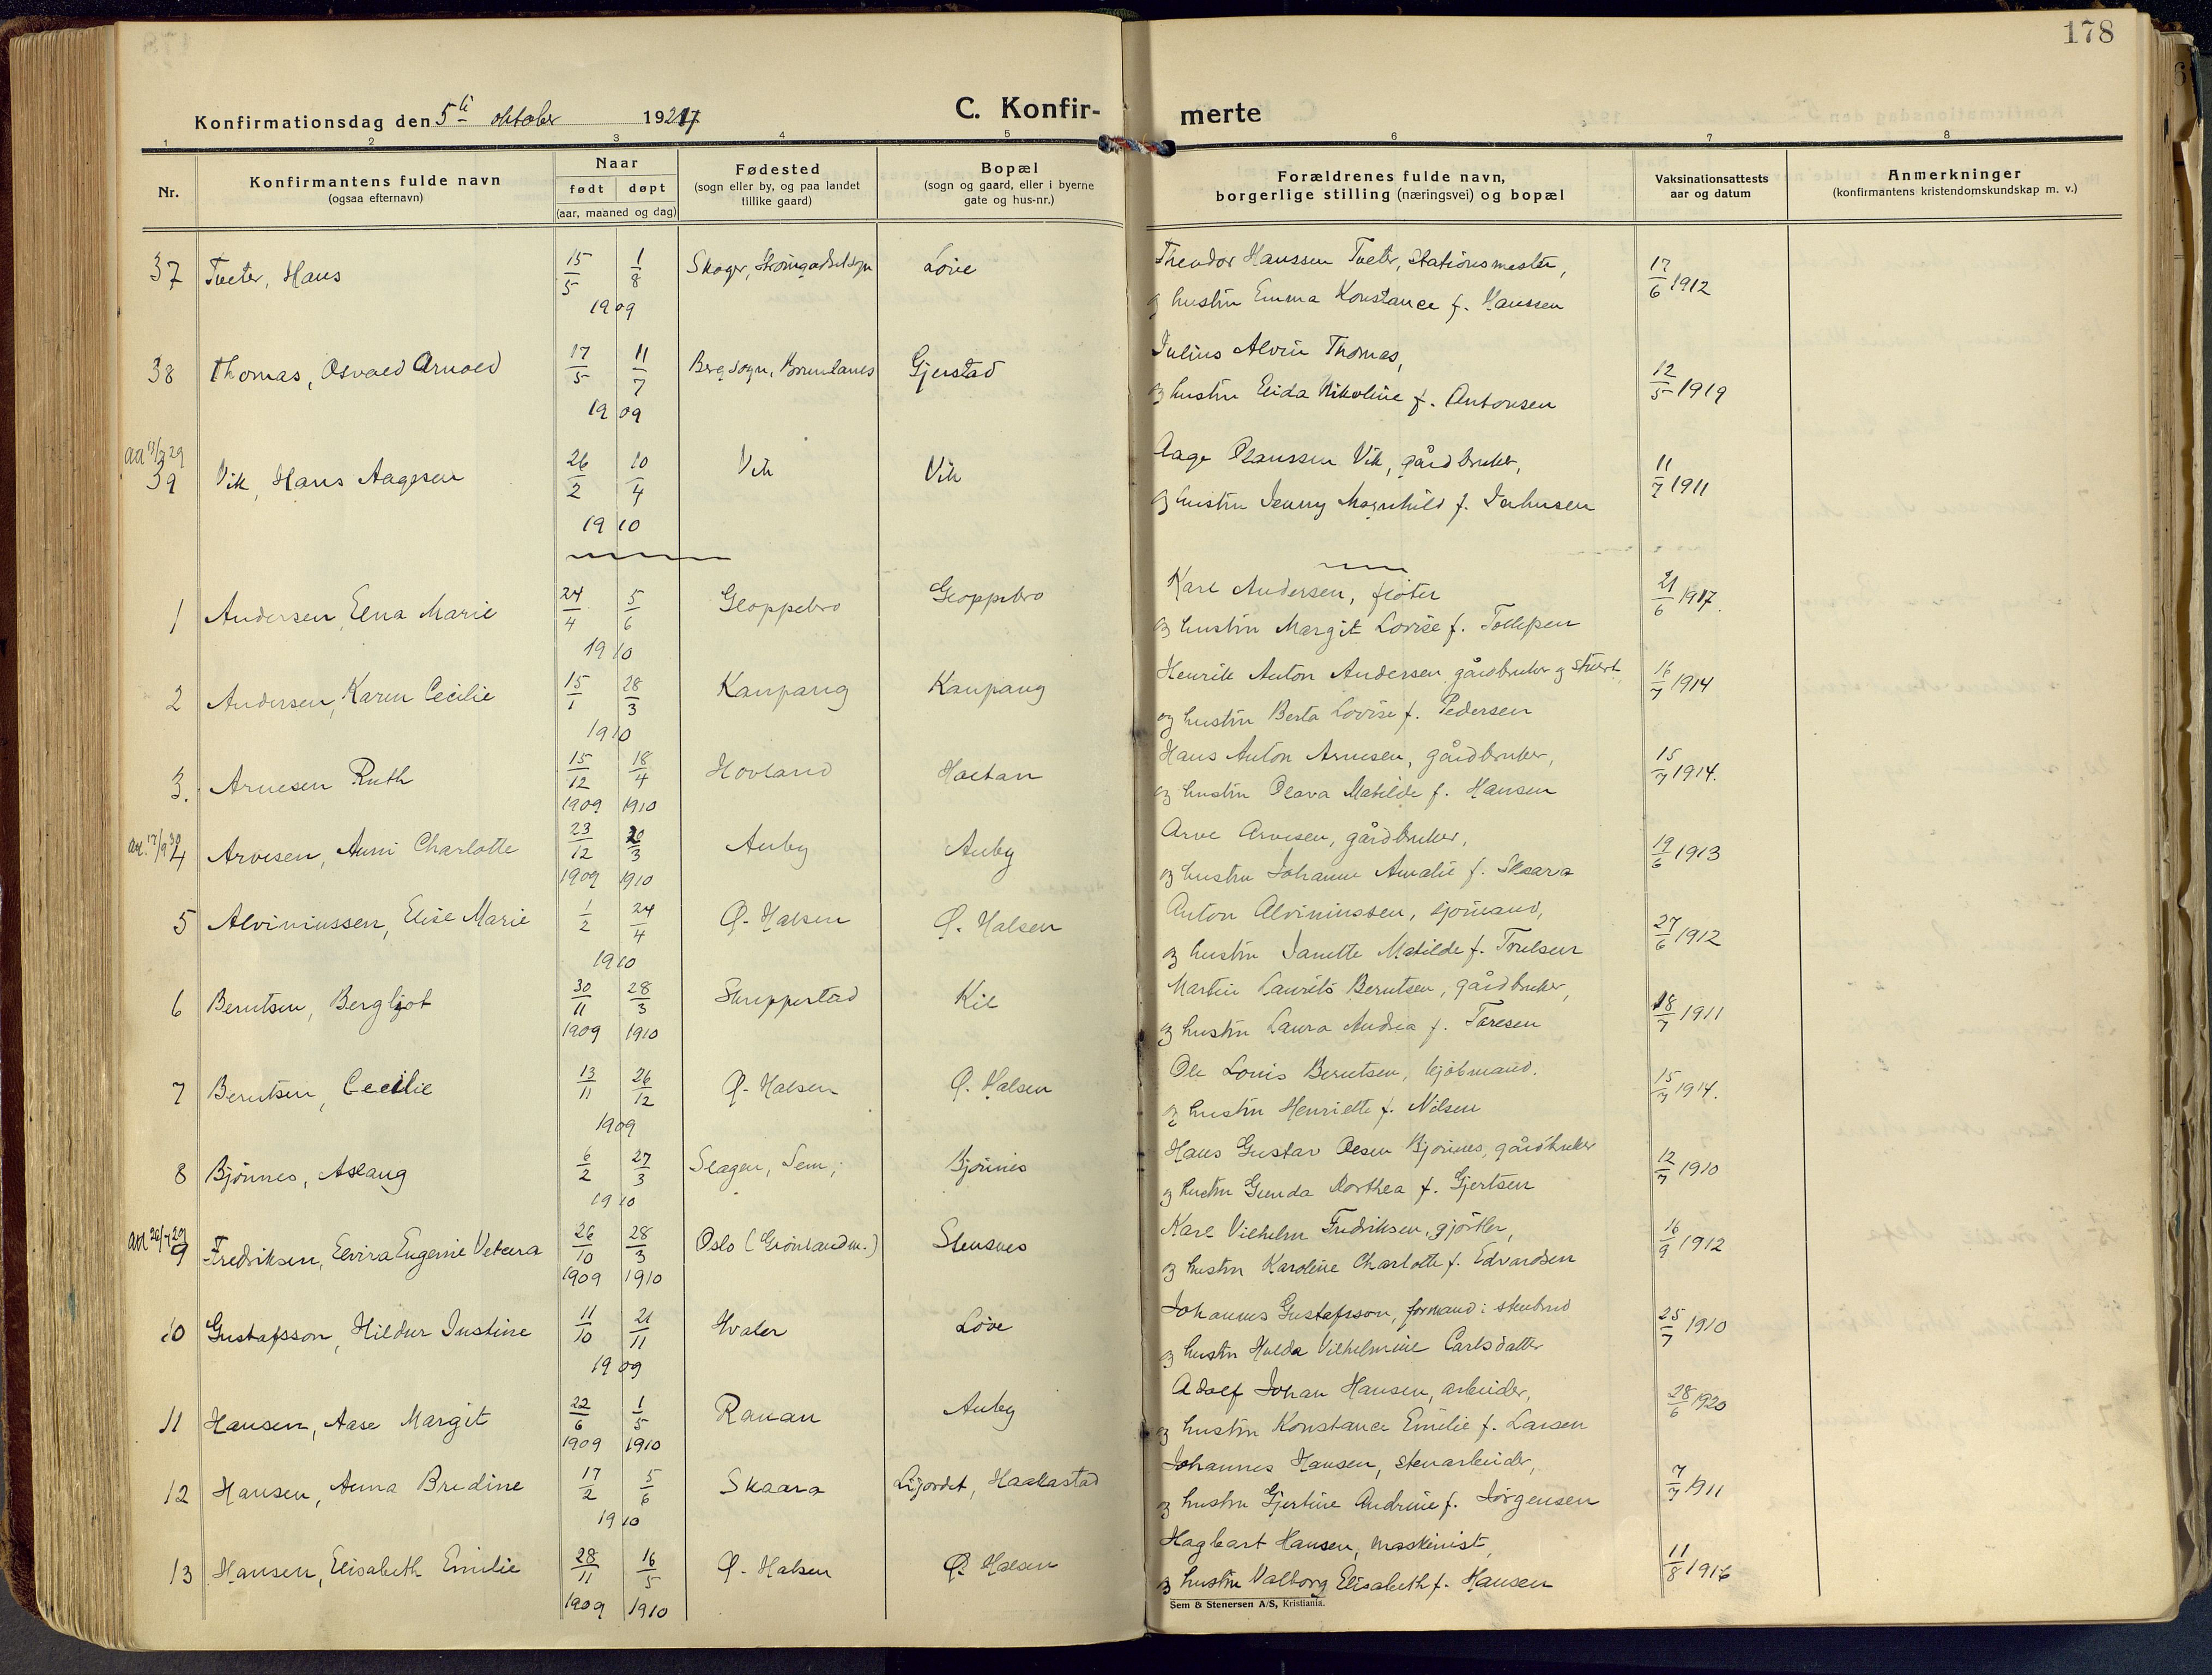 178
Konfirmationsdag den 5te oktober 1924
C. Konfirmerte
1 2 3 4 5 6 7 8
Nr. Konfirmantens fulde navn (ogsaa efternavn) Naar født døpt (aar, maaned og dag) Fødested (sogn eller by, og paa landet tillike gaard) Bopæl (sogn og gaard, eller i byerne gate og hus-nr.) Forældrenes fulde navn, borgerlige stilling (næringsvei) og bopæl Vaksinationsattests aar og datum Anmerkninger (konfirmantens kristendomskundskap m. v.)
37 Tveter, Hans 15/5 1/8 1909 Skoger, Løve Theodor Hanssen Tveter, stationsmester, 17/6 1912
og hustru Emma Konstance f. Hanssen
38 Thomas, Osvald Arnold 17/5 11/7 1909 Berg sogn, Gjerstad Julius Alvin Thomas, 12/5 1919
og hustru Elida Nikoline f. Antonsen
39 Vik, Hans Aagesen 26/2 10/4 1910 Vik Vik Aage Olaussen Vik, gårdbruker, 11/7 1911
og hustru Jenny Magnhild f. Jahnsen
1 Andersen, Elna Marie 24/4 5/6 1910 Gloppebro Gloppebro Karl Andersen, fløter 21/6 1917.
og hustru Margit Lovise f. Tollefsen
2 Andersen, Karen Cecilie 15/1 28/3 1910 Kaupang Kaupang Henrik Anton Andersen, gårdbruker og stuert 16/7 1914
og hustru Berta Lovise f. Pedersen
3. Arnesen Ruth 15/12 1909 18/4 1910 Hovland Haltan Hans Anton Arnesen, gårdbruker, 15/7 1914.
og hustru Olava Matilde f. Hansen
4 Arvesen, Anni Charlotte 23/12 1909 20/3 1910 Auby Auby Arve Arvesen, gårdbruker, 19/6 1913
og hustru Johanne Amalie f. Skaara
5 Alviniussen, Elise Marie 1/2 24/4 1910 Ø. Halsen Ø. Halsen Anton Alviniussen, sjømand, 27/6 1912
og hustru Janette Matilde f. Truelsen
6 Berntsen, Bergljot 30/11 1909 28/3 1910 Skuppestad Kil Martin Laurits Berntsen, gårdbruker, 18/7 1911
og hustru Laura Andrea f. Toresen
7 Berntsen, Cecilie 13/11 26/12 1909 Ø. Halsen Ø. Halsen Ole Louis Berntsen, kjøbmand. 15/7 1914.
og hustru Henriette f. Nilsen
8 Bjønnes, Aslaug 6/2 27/3 1910 Slagen, Sem; Bjønnes Hans Gustav Olsen Bjønnes, gårdbruker 12/7 1910
og hustru Gunda Dorthea f. Gjertsen
9 Fredriksen, Elvira Eugenie 26/10 1909 28/3 1910 Oslo (Grønland m.) Stensnes Karl Vilhelm Fredriksen, gjørtler, 16/9 1912
og hustru Karoline Charlotte f. Edvardsen
10 Gustafsson, Hildur Justine 11/10 21/11 1909 Hvaler Løve Johannes Gustafsson, formand i stenbrud 25/7 1910
og hustru Hulda Vilhelmine Carlsdatter
11 Hansen, Aase Margit 22/6 1909 1/5 1910 Rauan Auby Adolf Johan Hansen, arbeider, 28/6 1920
og hustru Konstance Emilie f. Larsen
12 Hansen, Anna Bredine 17/2 5/6 1910 Skaara Ligordet, Haakastad Johannes Hansen, stenarbeider, 7/7 1911
og hustru Gjertine Andrine f. Jørgensen
13 Hansen, Elisabeth Emilie 28/11 1909 16/5 1910 Ø. Halsen Ø. Halsen Hagbart Hansen, maskinist, 11/8 1916
og hustru Valborg Elisabeth f. Hansen
Sem & Stenersen A/S, Kristiania.